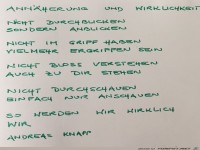 ANNÄHERUNG UND WIRKLICHKEIT
NICHT DURCHBLICKEN
SONDERN ANBLICKEN
NICHT IM GRIFF HABEN
VIELMEHR ERGRIFFEN SEIN
NICHT BLOSS VERSTEHEN
AUCH ZU DIR STEHEN
NICHT DURCHSCHAUEN
EINFACH NUR ANSCHAUEN
SO WERDEN WIR WIRKLICH
WIR
ANDREAS KNAPP